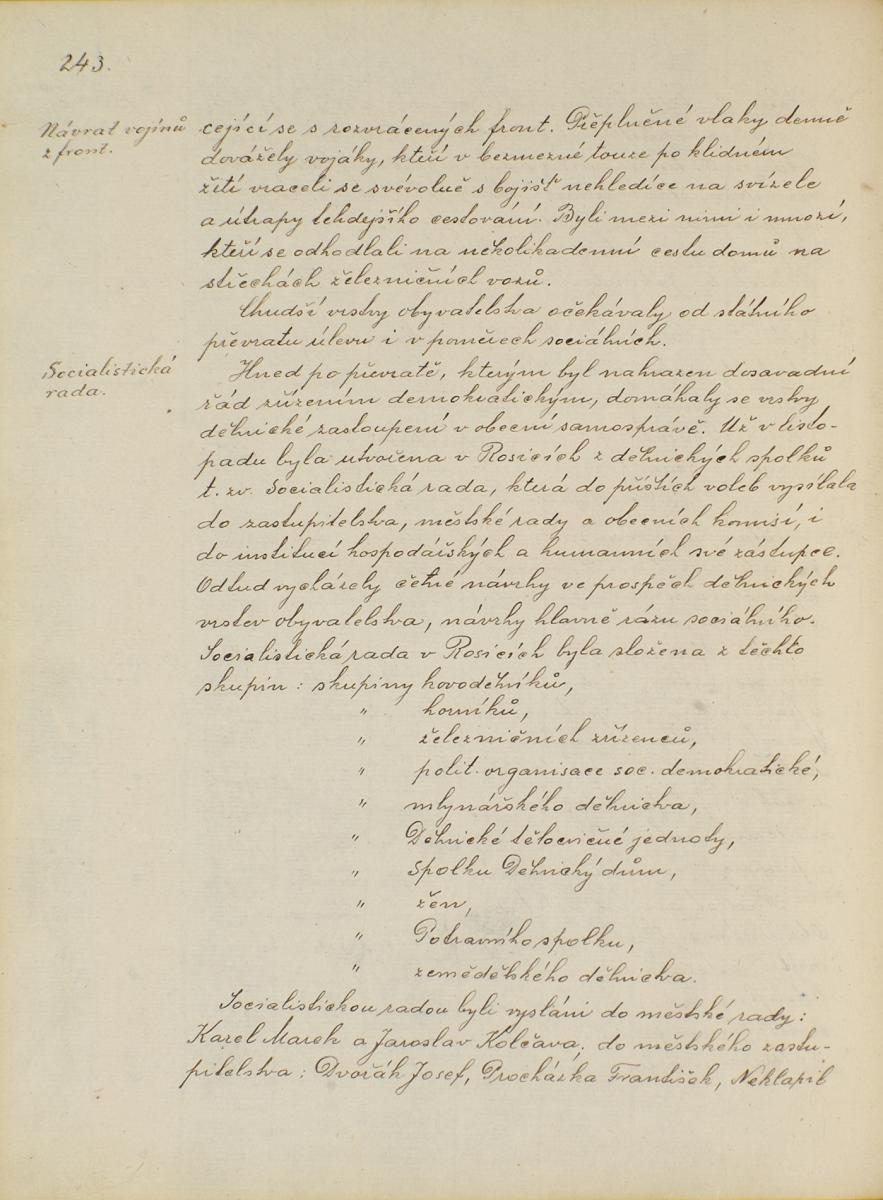 243.
Návrat vojínů
z front.
cející se s rozvrácených front. Přeplněné vlaky denně
dovážely vojáky, kteří v bezmezné touze po klidném
žití vraceli se svévolně s bojišť nehledíce na svízele
a útrapy tehdejšího cestování. Byli mezi nimi i mnozí,
kteří se odhodlali na několikadenní cestu domů na
střechách železničních vozů.
Chudší vrstvy obyvatelstva očekávaly od státního
převratu úlevu i v poměrech sociálních.
Socialistická
rada.
Hned po převratě, kterým byl nahrazen dosavadní
řád zřízením demokratickým, domáhaly se vrstvy
dělnické zastoupení v obecní samosprávě. Už v listo-
padu byla utvořena v Rosicích z dělnických spolků
t. zv. Socialistická rada, která do příštích voleb vysílala
do zastupitelstva, městské rady a obecních komisí, i
do institucí hospodářských a humanních své zástupce.
Odtud vycházely četné návrhy ve prospěch dělnických
vrstev obyvatelstva, návrhy hlavně rázu sociálního.
Socialistická rada v Rosicích byla složena z těchto
skupin : skupiny kovodělníků,
" horníků,
" železničních zřízenců,
" polit. organisace soc. demokratické,
" mlynářského dělnictva,
" Dělnické tělocvičné jednoty,
" spolku Dělnický dům,
" žen,
" Potravního spolku,
" zemědělského dělnictva.
Socialistickou radou byli vysláni do městské rady :
Karel Marek a Jaroslav Kolčava; do městského zastu-
pitelstva : Dvořák Josef, Procházka František, Neklapil